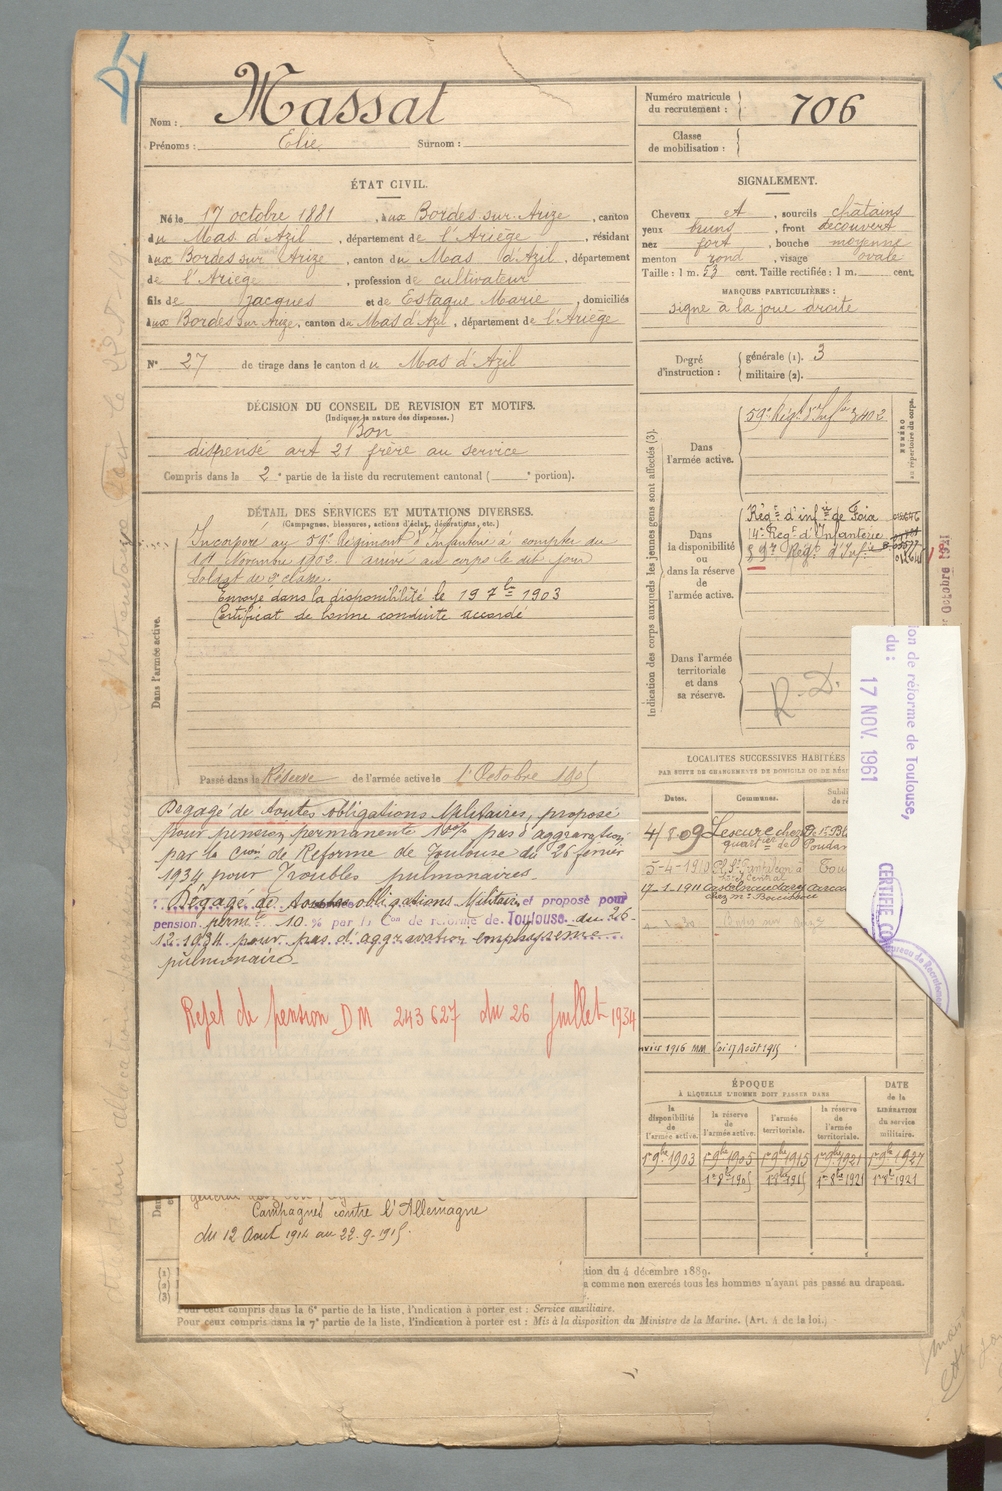 Nom : Massat
Prénoms : Elie Surnom :
ÉTAT CIVIL.
Né le 17 octobre 1881, aux Bordes sur Arize, canton
du Mas d'Azil, département de l'Ariège, résidant
aux Bordes sur Arize, canton du Mas d'Azil, département
de l'Ariège, profession de cultivateur
fils de Jacques et de Estaque Marie, domiciliés
aux Bordes sur Arize, canton du Mas d'Azil, département de l'Ariège
N° 27 de tirage dans le canton du Mas d'Azil
DÉCISION DU CONSEIL DE REVISION ET MOTIFS.
(Indiquer la nature des dispenses.)
Bon
dispensé art 21 frère au service
Compris dans la 2e partie de la liste du recrutement cantonal ( portion).
DÉTAIL DES SERVICES ET MUTATIONS DIVERSES.
(Campagnes, blessures, actions d'éclat, décorations, etc.)
Dans l'armée active.
Incorporé au 59e Régiment d'Infanterie à compter du
Novembre 1902. arrivé au corps le dit jour
Soldat de 2e classe.
Envoyé dans la disponibilité le 19 7bre 1903
Certificat de bonne conduite accordé
Passé dans la Réserve de l'armée active le 1er Octobre 1905
Dégagé de toutes obligations Militaires, proposé
pour pension permanente 10% pas d'aggravation
par la Con de Reforme de Toulouse du 26 février
1934 pour Troubles pulmonaires.
Dégagé de toutes obligations Militaires et proposé pour
pension permte 10 % par la Con de réforme de Toulouse du 26-
12.1934 pour pas d'aggravation emphysème
pulmonaire
Rejet de pension DM 243627 du 26 Juillet 1934
Campagnes contre l'Allemagne
du 12 Aout 1914 au 22-9-1915.
Pour ceux compris dans la 6e partie de la liste, l'indication à porter est : Service auxiliaire.
Pour ceux compris dans la 7e partie de la liste, l'indication à porter est : Mis à la disposition du Ministre de la Marine. (Art. 4 de la loi.)
Numéro matricule
du recrutement : 706
Classe
de mobilisation :
SIGNALEMENT.
Cheveux et, sourcils châtains
yeux bruns, front découvert
nez fort, bouche moyenne
menton rond, visage ovale
Taille : 1 m. 53 cent. Taille rectifiée : 1 m. cent.
MARQUES PARTICULIÈRES :
signe à la joue droite
Degré
d'instruction :
générale (1). 3
militaire (2).
Indication des corps auxquels les jeunes gens sont affectés (3).
NUMÉRO
au répertoire du corps.
Dans
l'armée active.
59e Régt d'Infie 3402
Dans
la disponibilité
ou
dans la réserve
de
l'armée active.
Régt d'infie de Foix
14e Régt d'Infanterie
59e Régt d'Infie
Dans l'armée
territoriale
et dans
sa réserve.
R. D.
Octobre 1921
ion de réforme de Toulouse,
du :
17 NOV. 1961
CERTIFIÉ CO
Bureau de Recrutement
LOCALITÉS SUCCESSIVES HABITÉES
PAR SUITE DE CHANGEMENTS DE DOMICILE OU DE
Dates. Communes.
4/8 09 Lescure chez
quartier de
5-4-1910
17-1-1911 Castelnaudary
vier 1916 MM Loi 17 Août 1915
ÉPOQUE
À LAQUELLE L'HOMME DOIT PASSER DANS
DATE
de la
LIBÉRATION
du service
militaire.
la
disponibilité
de
l'armée active.
la réserve
de
l'armée active.
l'armée
territoriale.
la réserve
de
l'armée
territoriale.
1er 9bre 1903 1er 9bre 1905 1er 9bre 1915 1er 9bre 1921 1er 9bre 1927
1er 8bre 1905 1er 8bre 1915 1er 8bre 1921 1er 8bre 1921
tion du 4 décembre 1889.
a comme non exercés tous les hommes n'ayant pas passé au drapeau.